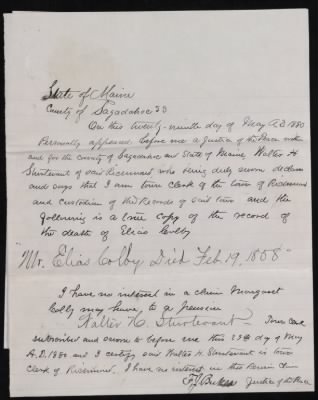 State of Maine
County of Sagadahoc SS
On this twenty-ninth day of May A.D. 1880
Personally appeared before me a Justice of the Peace within
and for the County of Sagadahoc and State of Maine, Walter H
Sturtevant of said Richmond, who being duly sworn declares
and says that I am town Clerk of the town of Richmond
and Custodian of the Records of said town and the
following is a true copy of the record of
the death of Elias Colby
"Mr. Elias Colby Died Feb 19, 1858"
I have no interest in a claim Margaret
Colby may have, to a pension
Walter H. Sturtevant - Town Clerk
subscribed and sworn to before me this 29th day of May
A.D. 1880 and I certify said Walter H. Sturtevant is town
Clerk of Richmond. I have no interest in this Pension Claim
Justice of the Peace